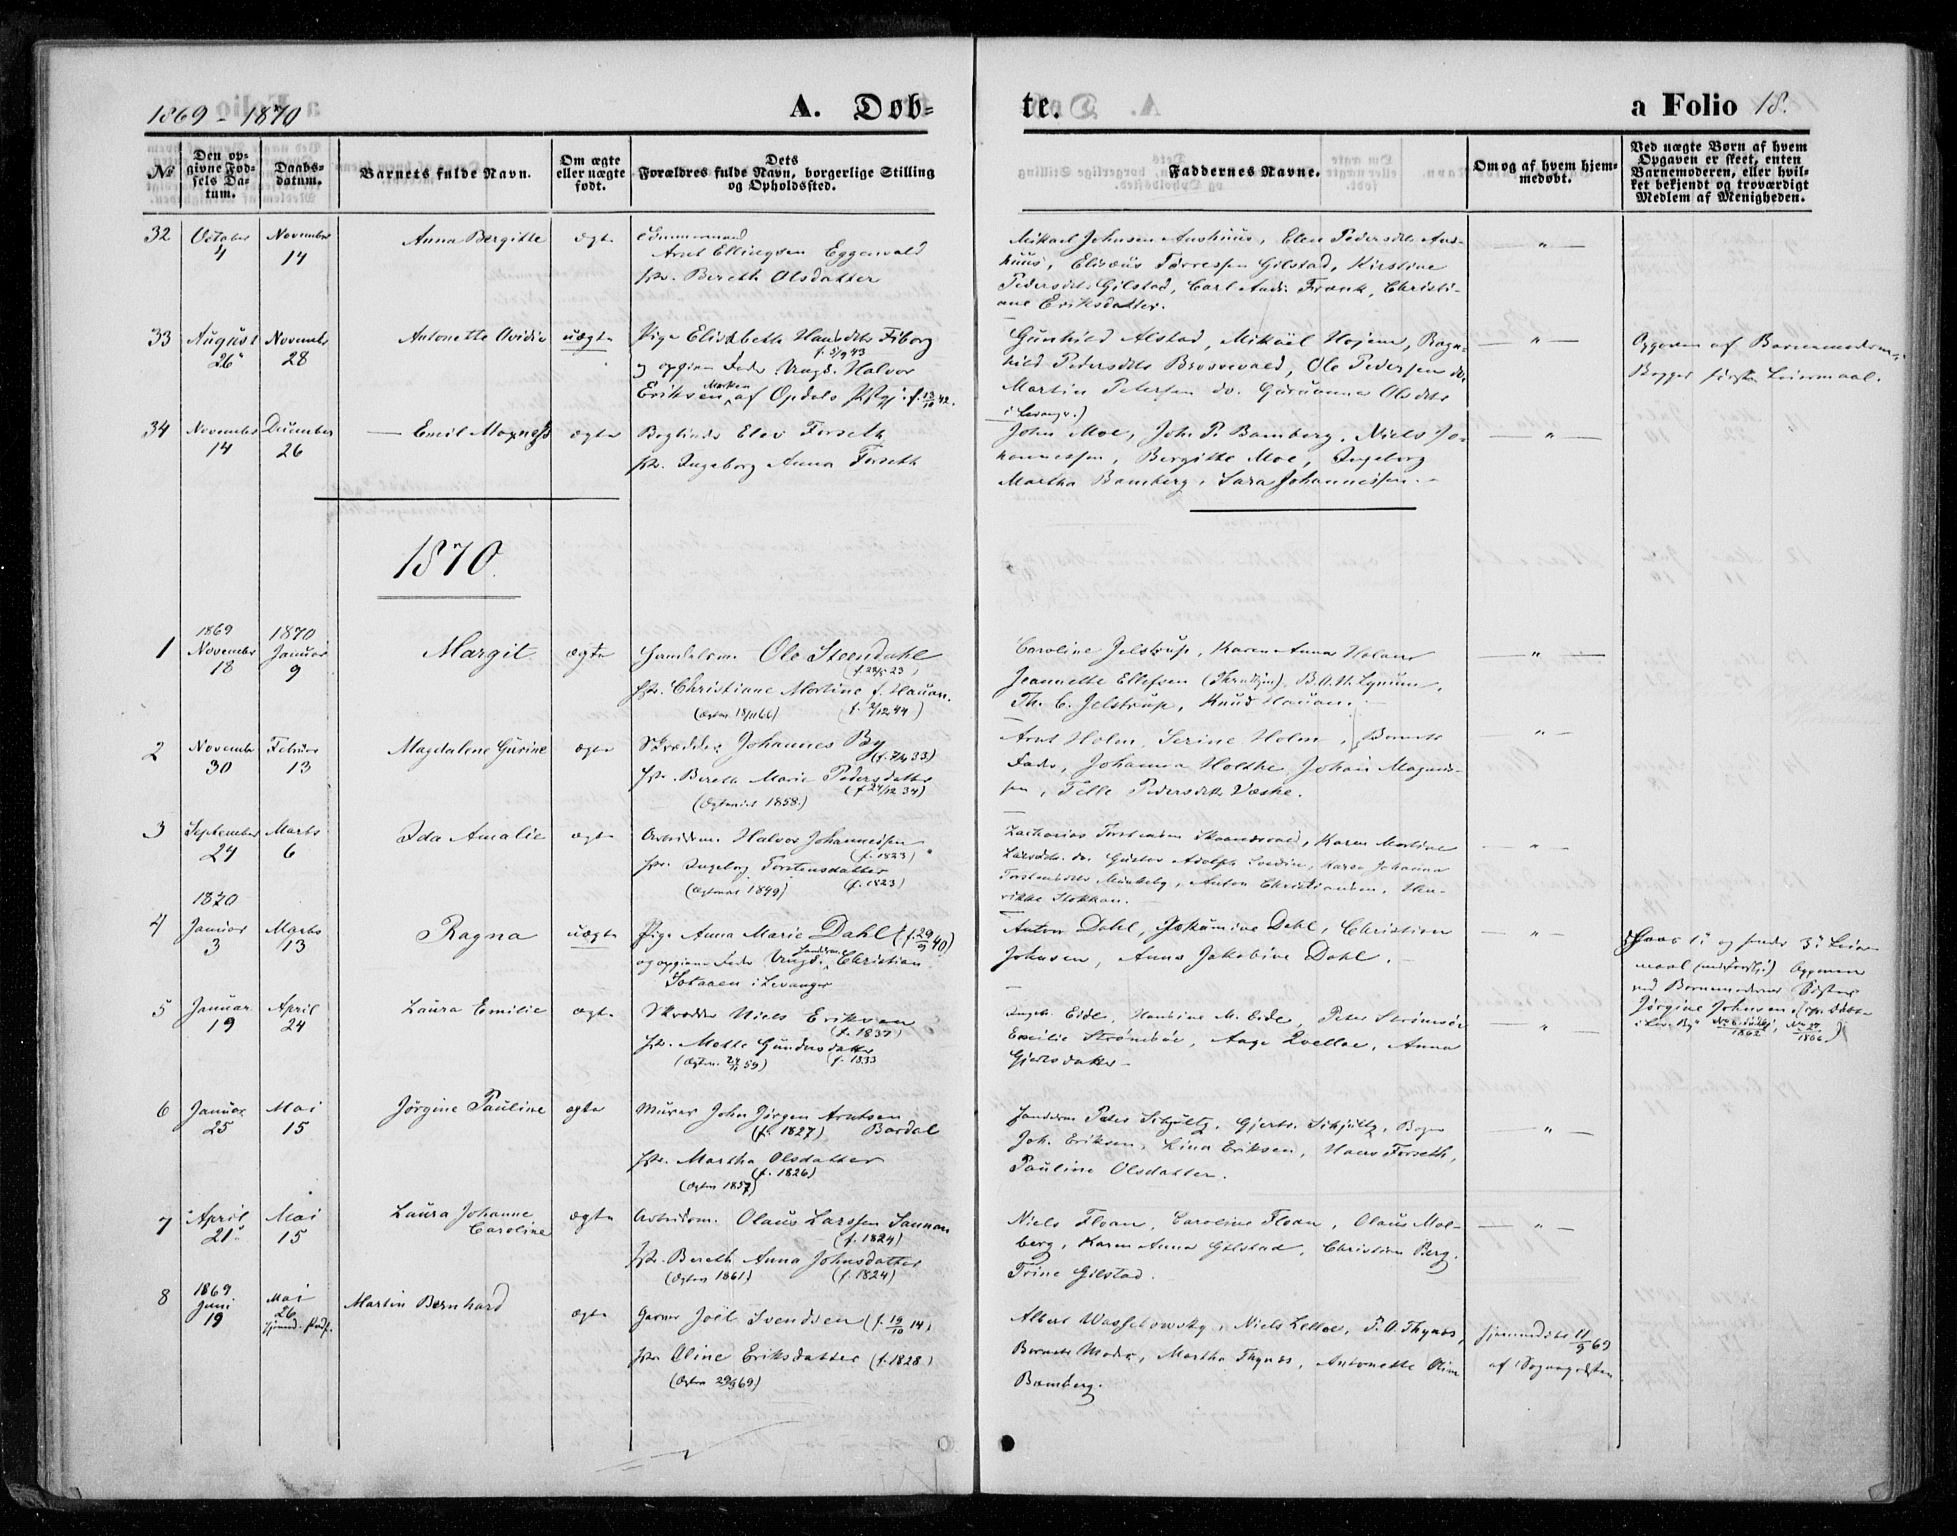 1869 - 1870
A. Døb-
te.
a Folio 18.
No
Den op-
givne Fød-
sels Da-
tum.
Daabs-
datum.
Barnets fulde Navn.
Om ægte
eller uægte
født.
Dets
Forældres fulde Navn, borgerlige Stilling
og Opholdssted.
Faddernes Navne.
Om og af hvem hjem-
medøbt.
Ved uægte Børn af hvem
Opgaven er skeet, enten
Barnemoderen, eller hvil-
ket bekjendt og troværdigt
Medlem af Menigheden.
32
October
4
November
14
Anna Bergitte
ægte
Arnt Ellingsen Eggenvald
Htr. Bereth Olsdatter
Mikael Johnsen Aushuus, Elen Pedersdtr Aus-
huus, Elizæus Torressen Gilstad, Kirstine
Pedersdtr Gilstad, Carl Andr. Frank, Christi-
ane Eriksdatter.
"
33
August
26
Novemb
28
Antonette Ovidia
uægte
Pige Elisabeth Hansdtr Fiborg
f. 5/9 43
og opgiven Fader Ungk. Halvor
Eriksen af Opdals Pstgj. f. 13/10 42.
Gunhild Alstad, Mikael Hojem, Ragn-
hild Pedersdtr Brossvald, Ole Pedersen do,
Martin Petersen do. Guruanna Olsdtr
i Levanger)
"
Opgaven af Barnemoderen,
Begges første Leiermaal.
34
November
14
December
26
Emil Magnus
ægte
Elev Forseth
Htr. Ingeborg Anna Forseth
John Moe, Joh. P. Bamberg, Niels Jo-
hannessen, Bergitte Moe, Ingeborg
Martha Bamberg, Sara Johannessen.
"
1870.
1
1869
November
18
1870
Januar
9
Margit
ægte
Handelsm. Ole Steendahl
(f. 28/5 23)
Htr. Christiane Martine f. Hauan.
(Ægtev. 18/11 66)
(f. 2/12 44)
Caroline Jelstrup, Karen Anna Holand
Jeannette Ellefsen (Thrndhjm), B. A. H. Lynum,
Th. C. Jelstrup, Knud Hauan.
"
2
Novembr
30
Februar
13
Magdalene Gurine
ægte
Skrædder Johannes By
(f. 7/4 33)
Htr. Bereth Marie Pedersdatter
(f. 24/12 34)
(Ægteviet 1858.)
Arnt Holm, Serine Holm, Barnets
Fader, Johanna Holthe, Johan Magnus-
sen, Pedersdtr Væske.
"
3
September
24
Marts
6
Ida Amalie
ægte
Arbeidsm. Halvor Johannessen
(f. 1823)
Htr. Ingeborg Torstensdatter
(Ægteviet 1849)
(f. 1823)
Zacharias Torstensen, Karen Martine
Larsdtr. do. Gustav Adolph, Karen Johanna
Torstensdtr Munkeby, Anton Christiansen, Hen-
rikke Stokkan.
"
1870
4
Januar
3
Marts
13
Ragna
uægte
Pige Anna Marie Dahl (f. 29/9 40)
og opgiven Fader Ungk. Christian
i Levanger
Anton Dahl, Jokumine Dahl, Christian
Johnsen, Anna Jakobine Dahl.
"
Jørgine Johnsen
5
Januar
19
April
24
Laura Emilie
ægte
Skrædder Niels Eriksen
(f. 1837)
Htr. Mette Gundersdatter
(f. 1833
Ingeb. Eide, M. Eide, Peter Strømsøe
Emilie Strømsøe, Aage Qvelloe, Anna
Gjertsdatter
"
6
Januar
25
Mai
15
Jørgine Pauline
ægte
Murer John Jørgen Arntsen
(f. 1827) Bardal
Htr. Martha Olsdatter
(f. 1826)
(Ægtev 1857)
Peter Schjultz, Schjultz, Bager
Joh. Eriksen, Lina Eriksen, Hans Forseth,
Pauline Olsdatter.
"
7
April
21
Mai
15
Laura Johanne
Caroline
ægte
Arbeidsm. Olaus Larssen Sannan
(f. 1824)
Htr. Bereth Anna Johnsdatter
(Ægtev 1861)
(f. 1824)
Niels Floan, Caroline Floan, Olaus Mol-
berg, Karen Anna Gilstad, Christian Berg,
Trine Gilstad.
"
8
1869
Juni
19
Mai
26
Martin Bernhard
ægte
Garver Joel Svendsen (f. 19/10 14)
Htr. Oline Eriksdatter (f. 1828)
Albert Wasselowsky, Niels Lelloe, P. A. Thynæs,
Barnets Moder, Martha Thynæs, Antonette Oline
Bamberg.
hjemmedøbt 11/9 69
af Sognepræsten